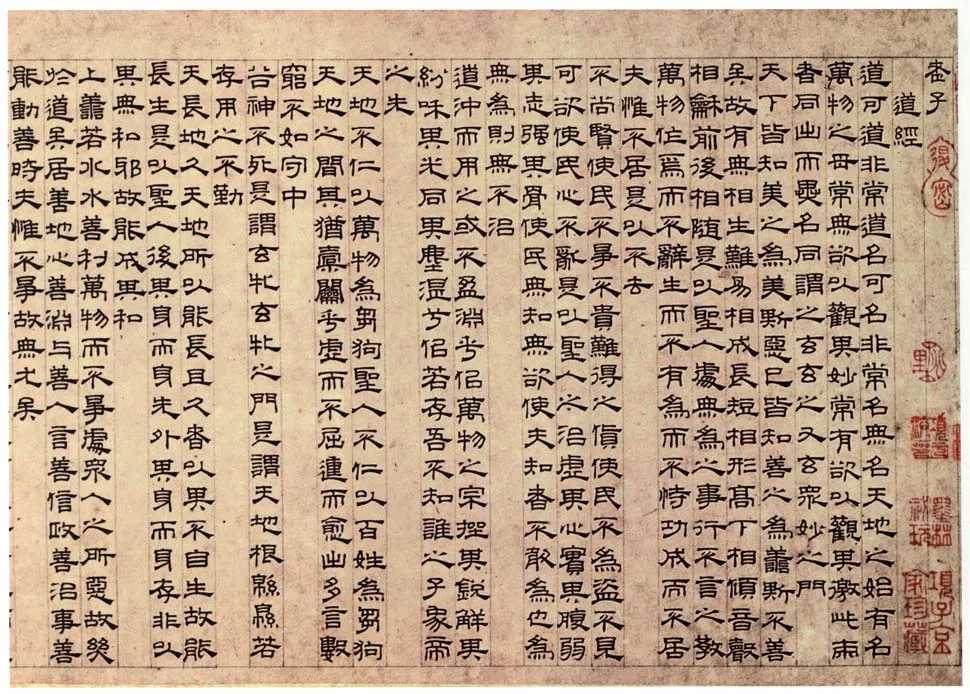 老子
道經
道可道非常道名可名非常名無名天地之始有名
萬物之母常無欲以觀其妙常有欲以觀其徼此兩
者同出而異名同謂之玄玄之又玄眾妙之門
天下皆知美之為美斯惡已皆知善之為善斯不善
矣故有無相生難易相成長短相形高下相傾音聲
相龢前後相隨是以聖人處無為之事行不言之教
萬物作焉而不辭生而不有為而不恃功成而不居
夫惟不居是以不去
不尚賢使民不爭不貴難得之貨使民不為盜不見
可欲使民心不亂是以聖人之治虛其心實其腹弱
其志强其骨使民無知無欲使夫知者不敢為也為
無為則無不治
道沖而用之或不盈淵乎似萬物之宗挫其銳解其
紛和其光同其塵湛兮似若存吾不知誰之子象帝
之先
天地不仁以萬物為芻狗聖人不仁以百姓為芻狗
天地之間其猶橐籥乎虛而不屈動而愈出多言數
窮不如守中
谷神不死是謂玄牝玄牝之門是謂天地根綿綿若
存用之不勤
天長地久天地所以能長且久者以其不自生故能
長生是以聖人後其身而身先外其身而身存非以
其無私邪故能成其私
上善若水水善利萬物而不爭處眾人之所惡故幾
於道矣居善地心善淵与善人言善信政善治事善
能動善時夫惟不爭故無尤矣
墨林祕玩
項子京家珍藏